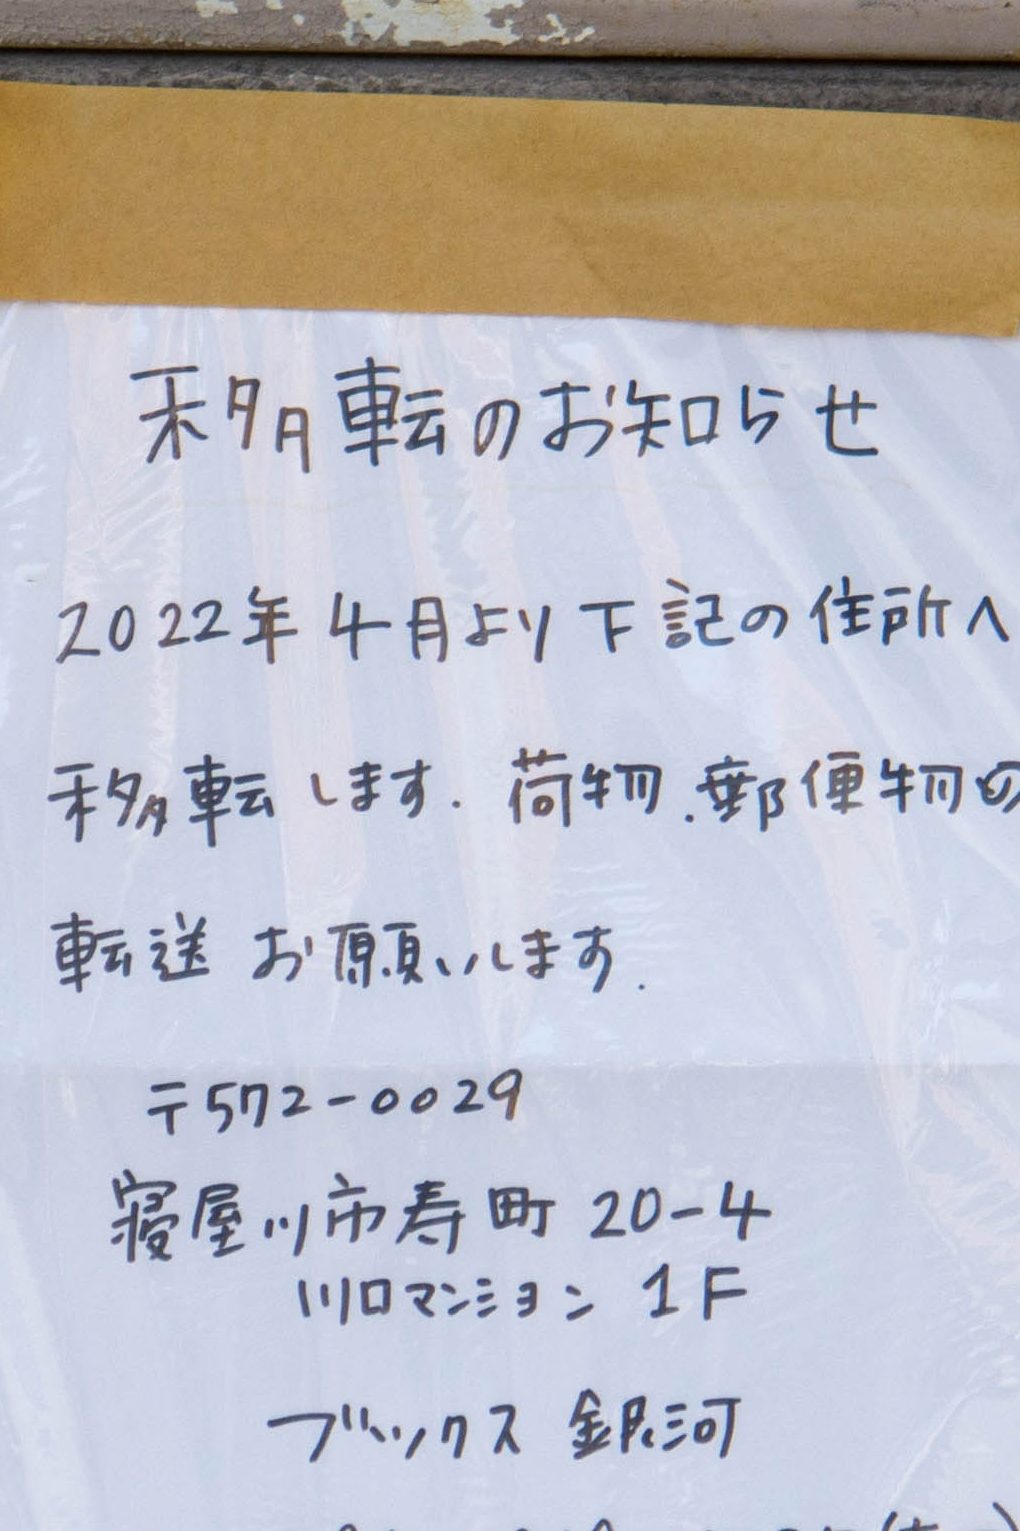 移転のお知らせ
2022年4月より下記の住所へ
移転します.荷物.郵便物の
転送 お願いします.
〒572-0029
寝屋川市寿町 20-4
川口マンション 1F
ブックス 銀河